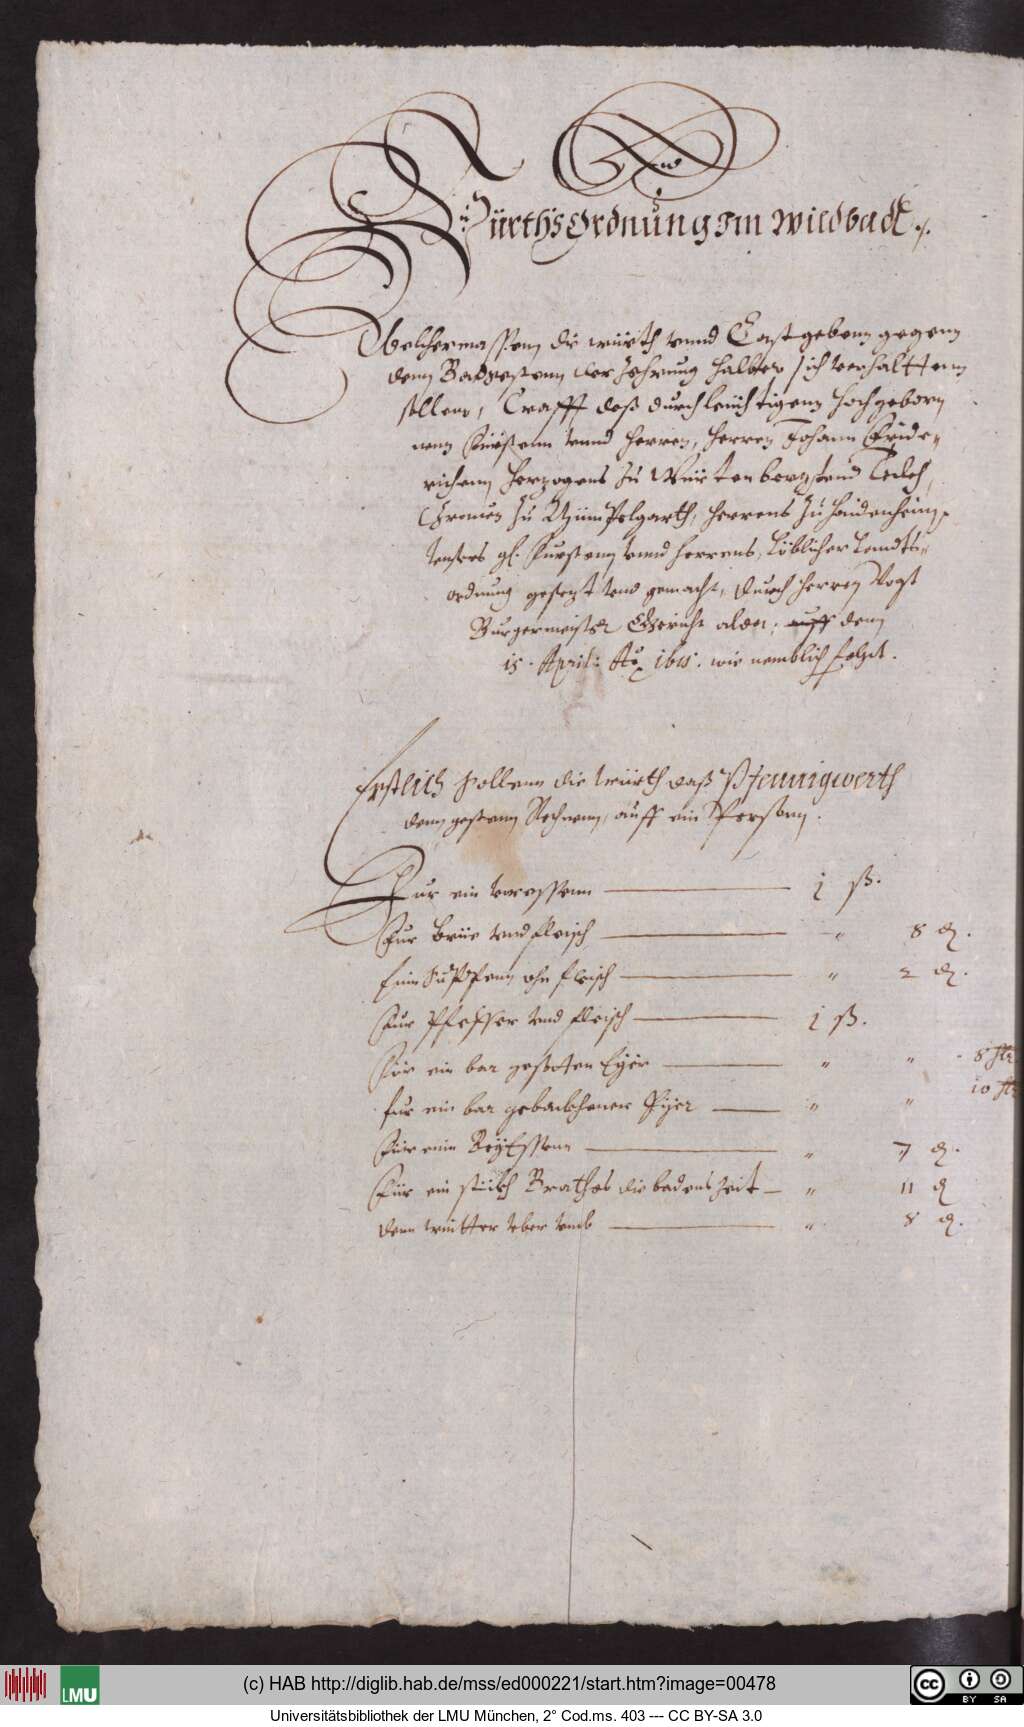 Würths Ordnung Im Wildbadt ./.
Welchermassenn die würth vnnd Gastgebenn gegenn
denn Badgestenn der Zehrung halber sich verhalttenn
sollenn, Crafft deß durchleüchtigenn Hochgeborn
nenn Fürstenn vnnd Herren, Herren Johann Fride-
richenn Herzogens Zu Würtenberg vnnd Teckh,
Grauen Zu Mümpelgarth, Herrens Zu Haidenheim,
vnsers gl: Fürstenn vnnd Herrens, Löblicher Landts-
ordnung gesezt vnd gemacht, durch Herren Vogt
Burgermeister Gericht alda, auff denn
15. April: Ao 1611. wie nemblich folgt.
Erstlich sollenn die würth daß Pfennigwerth
denn gestenn Rechnenn, auff ein Personn.
Für ein voressenn 1 ß.
Für Brüe vnd fleisch " 8 d.
Einn Suppenn ohn fleisch " 2 d.
Für Pfeffer vnd fleisch 1 ß.
Für ein bar gesotten Eyer " " 8 hlr
für ein bar gebachener Eyer " " 10 hlr
Für einn Beyessenn " 7 d.
Für ein stückh Brathes die badens Zeit " 11 d
denn winter vber vmb " 8 d.
(c) HAB http://diglib.hab.de/mss/ed000221/start.htm?image=00478
LMU
cc BY SA
Universitätsbibliothek der LMU München, 2° Cod.ms. 403 --- CC BY-SA 3.0